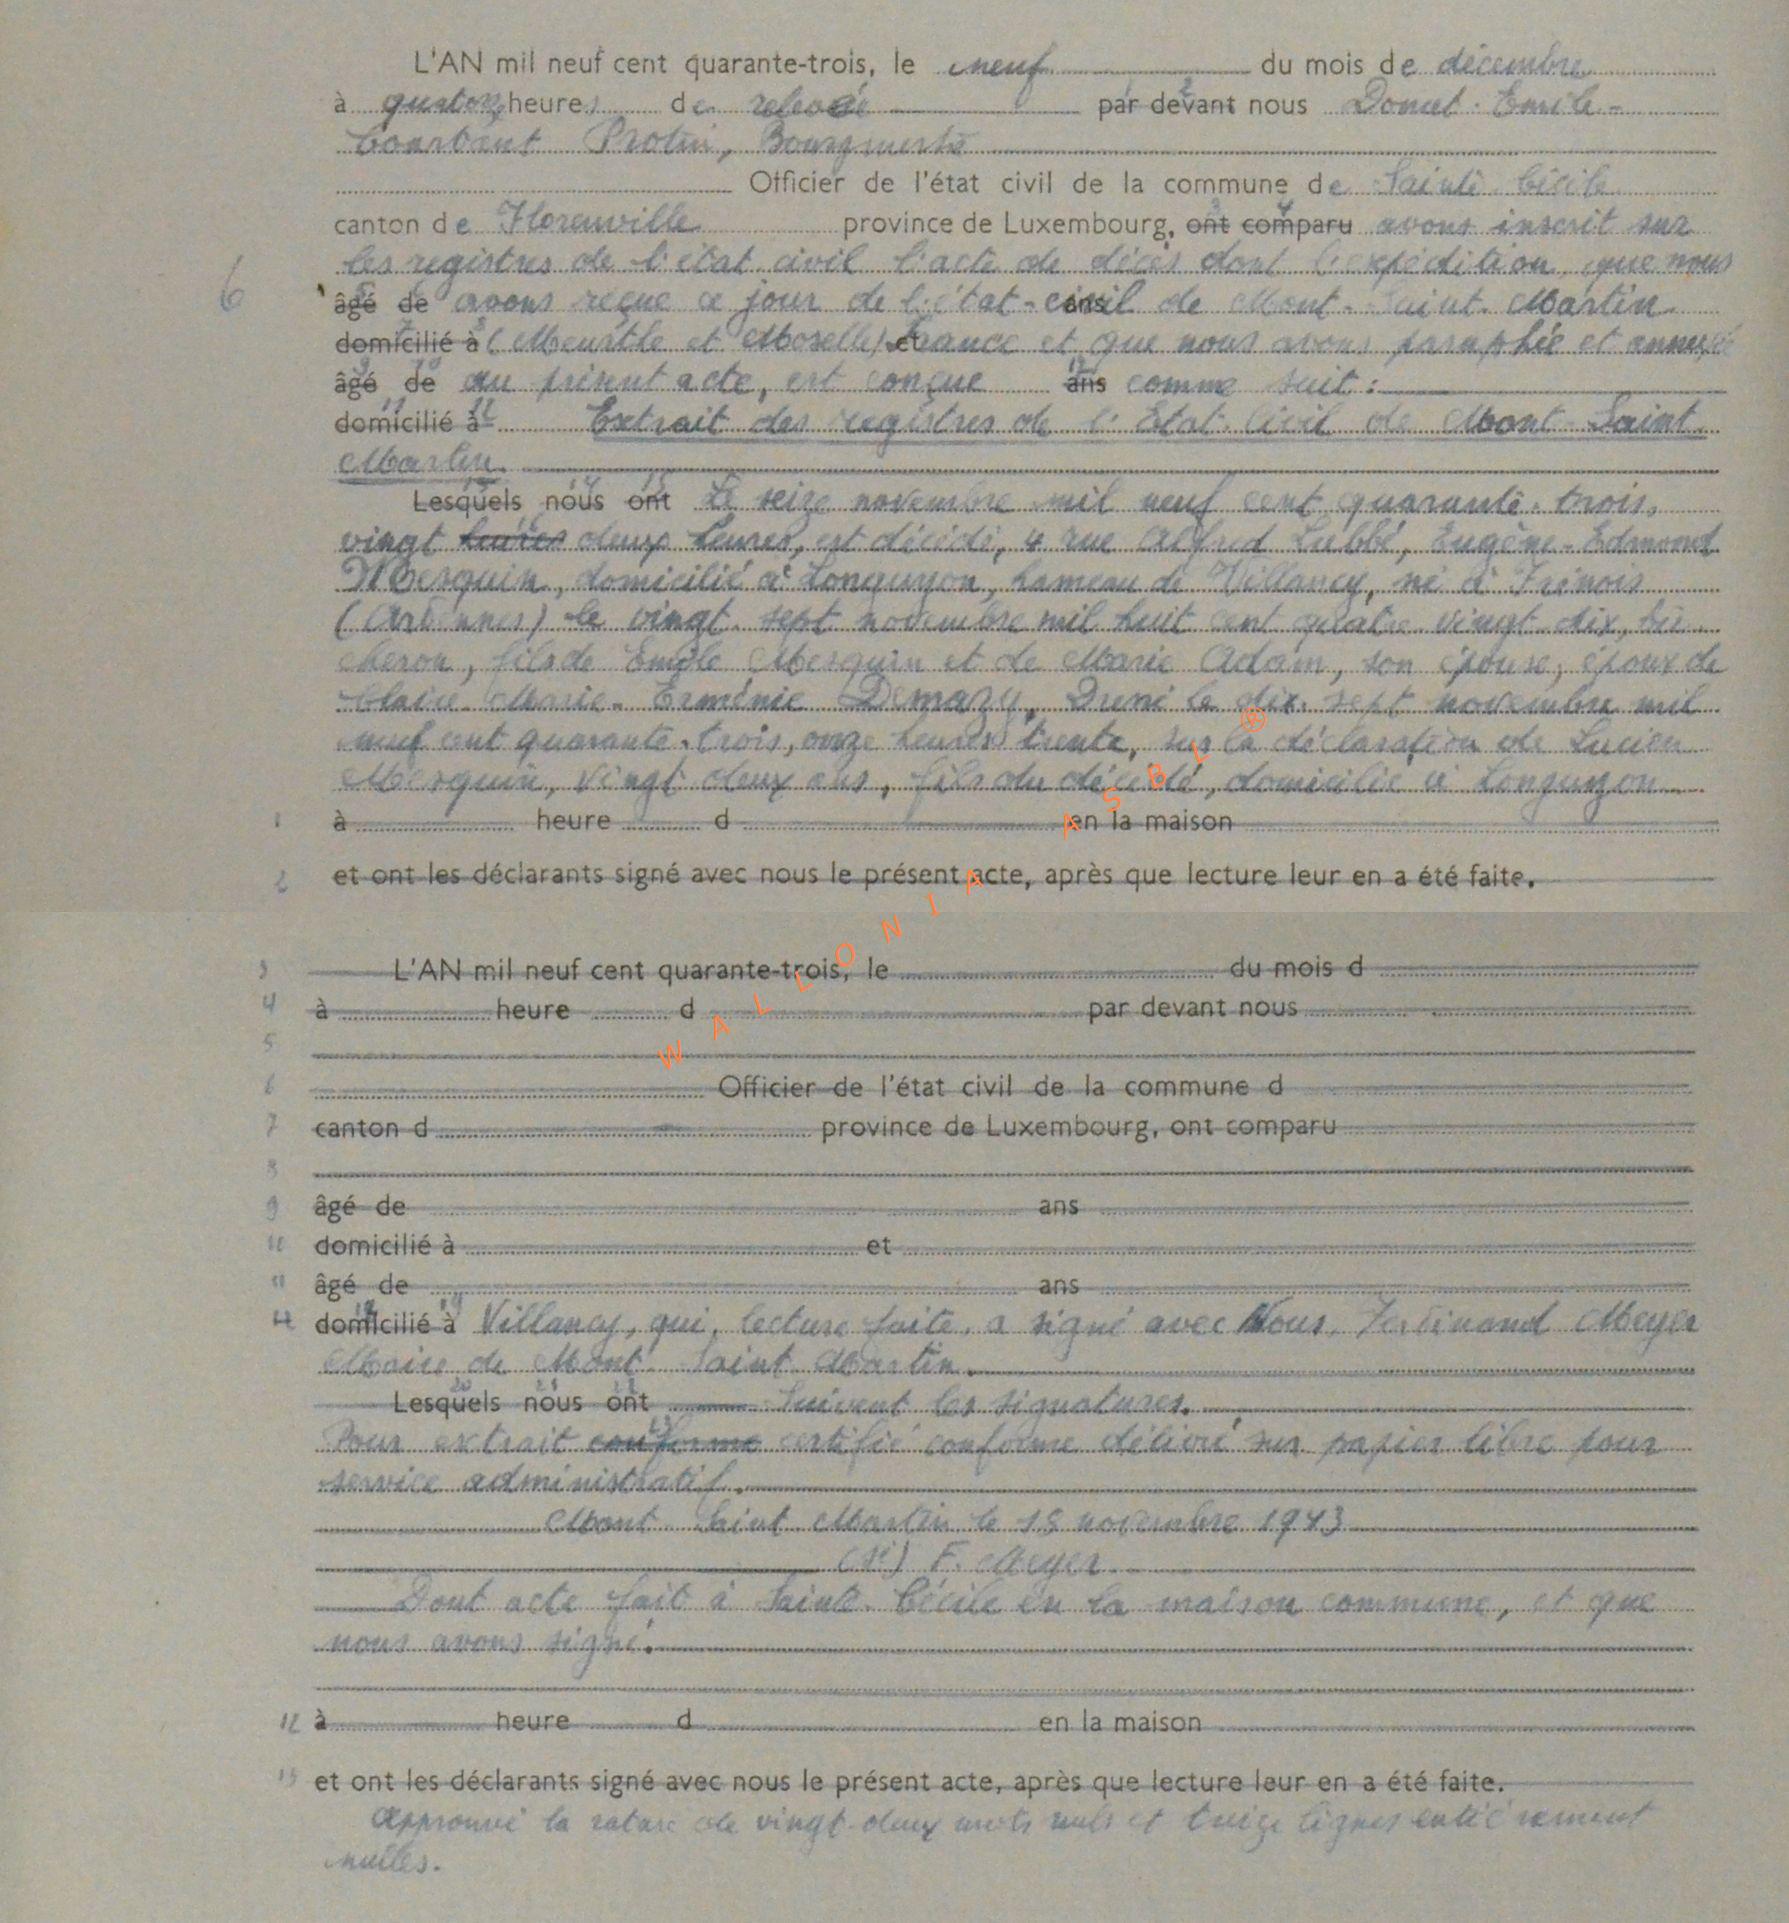 L'AN mil neuf cent quarante-trois, le neuf du mois de décembre
à quatorze heures de relevée par devant nous Donat-Emile-
Constant Protin, Bourgmestre
Officier de l'état civil de la commune de Sainte-Cécile
canton de Florenville province de Luxembourg, ont comparu avons inscrit sur
les registres de l'état civil l'acte de décès dont l'expédition, que nous
6 âgé de avons reçue ce jour de l'état-civil ans de Mont-Saint-Martin
domicilié à (Meurthe et Moselle) et France et que nous avons paraphée et annexée
âgé de au présent acte, est conçue ans comme suit :
domicilié à Extrait des registres de l'Etat-Civil de Mont-Saint
Martin.
Lesquels nous ont Le seize novembre mil neuf cent quarante-trois,
vingt heures deux heures, est décédé, 4 rue Alfred Labbé, Eugène-Edmond
Mesquin, domicilié à Longuyon, hameau de Villancy, né à Frénois
(Ardennes) le vingt-sept novembre mil huit cent quatre-vingt-dix, bû-
cheron, fils de Emile Mesquin et de Marie Adam, son épouse, époux de
Claire-Marie-Erménie Demazy. Dressé le dix-sept novembre mil
neuf cent quarante-trois, onze heures trente, sur la déclaration de Lucien
Mesquin, vingt-deux ans, fils du décédé, domicilié à Longuyon
1 à heure d en la maison
2 et ont les déclarants signé avec nous le présent acte, après que lecture leur en a été faite.
3 L'AN mil neuf cent quarante-trois, le du mois d
4 à heure d par devant nous
5
6 Officier de l'état civil de la commune d
7 canton d province de Luxembourg, ont comparu
8
9 âgé de ans
10 domicilié à et
11 âgé de ans
domicilié à Villancy, qui, lecture faite, a signé avec Nous, Ferdinand Meyer
Maire de Mont-Saint-Martin.
Lesquels nous ont Suivent les signatures.
Pour extrait conforme certifié conforme délivré sur papier libre pour
service administratif.
Mont-Saint-Martin le 18 novembre 1943
(sé) F. Meyer
Dont acte fait à Sainte-Cécile en la maison commune, et que
nous avons signé.
12 à heure d en la maison
13 et ont les déclarants signé avec nous le présent acte, après que lecture leur en a été faite.
Approuvé la rature de vingt-deux mots nuls et treize lignes entièrement
nulles.
WALLONIA ASBL ®